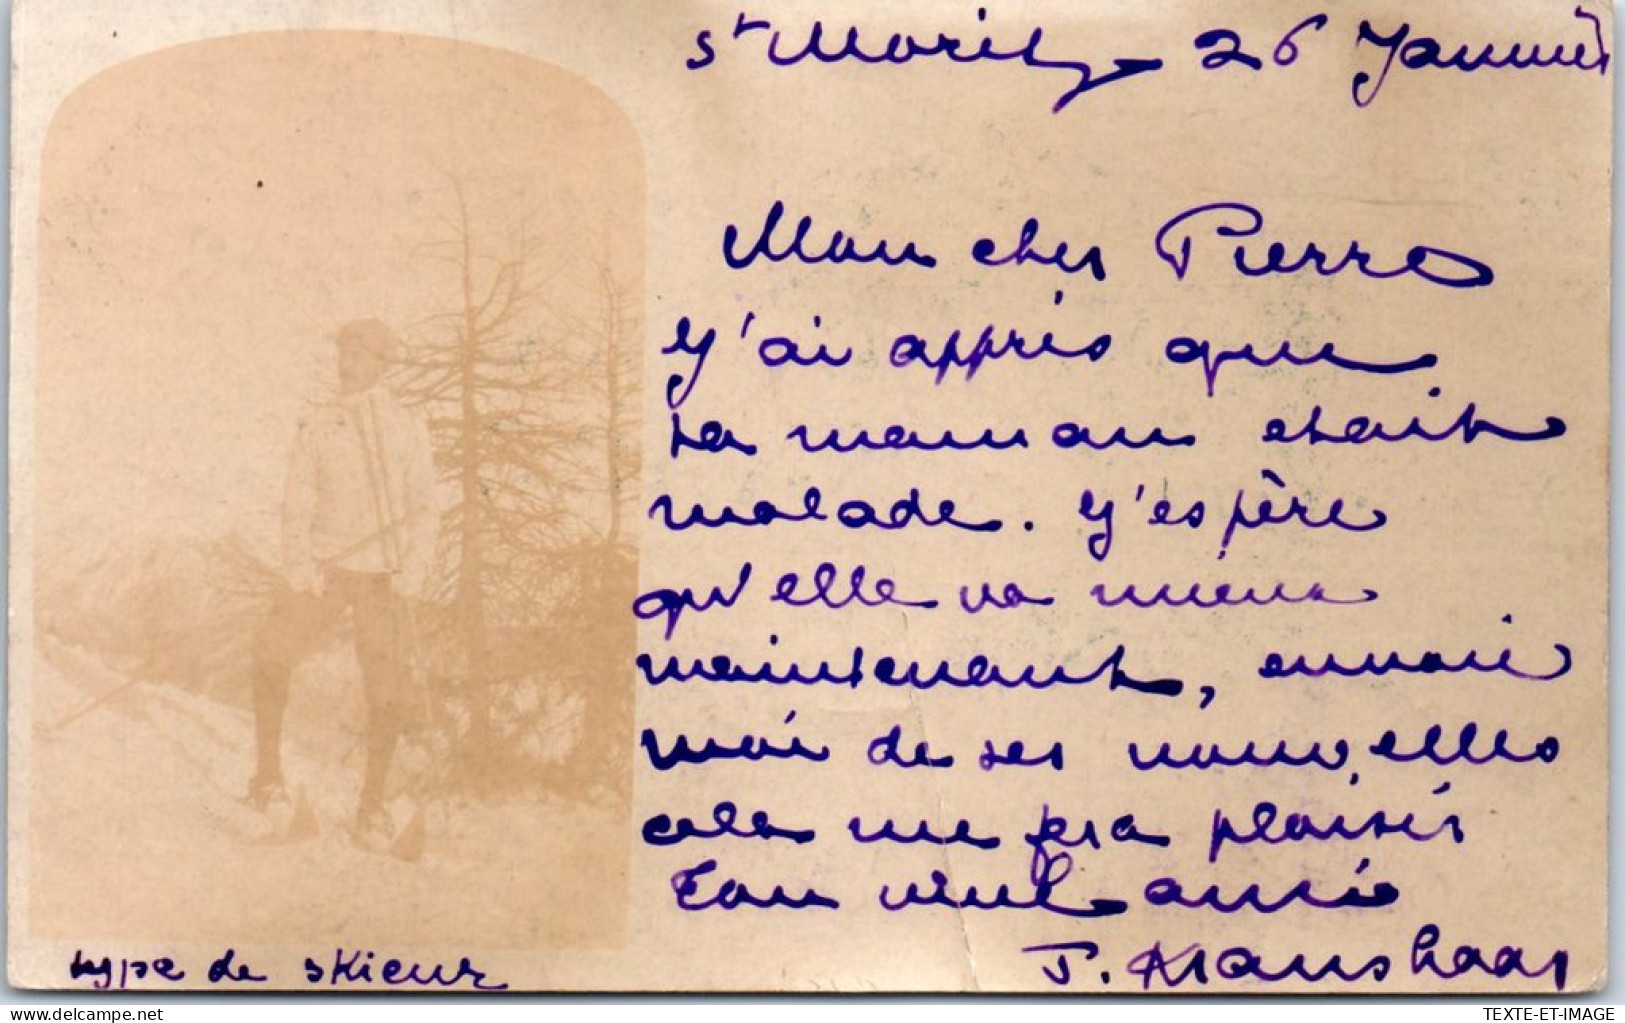 St Moritz 26 Janvier
Mon cher Pierre
J'ai appris que
ta maman etait
malade. J'espère
qu'elle va mieux
maintenant, envoie
moi de ses nouvelles
cela me fera plaisir
Ton vieil ami
J.
type de skieur
delcampe.net
TEXTE-ET-IMAGE